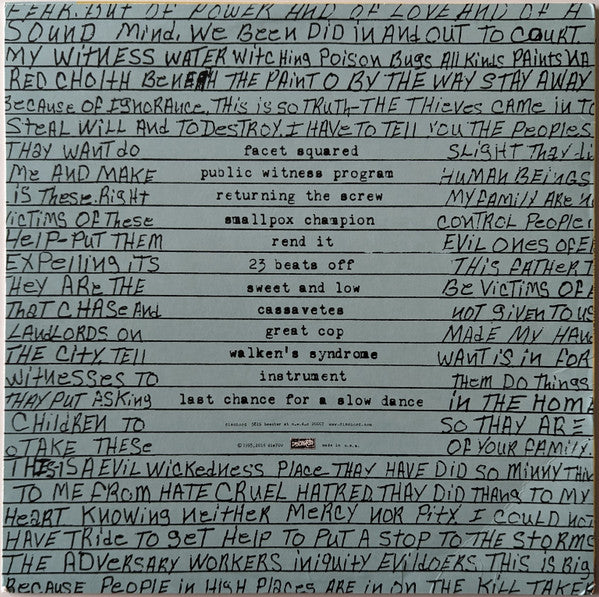 FEAR. BUT OF POWER AND OF LOVE AND OF A
SOUND MIND. WE BEEN DID IN AND OUT TO COURT
MY WITNESS WATER WITCHING POISON BUGS ALL KINDS PAINTS
RED CHOITH THE PAINT O BY THE WAY STAY AWAY
BECAUSE OF IGNORANCE, THIS IS SO TRUTH-THE THIEVES CAME IN TO
STEAL WILL AND TO DESTROY. I HAVE TO TELL YOU THE PEOPLES
THAY WANT do facet squared SLIGHT THAY
ME AND MAKE public witness program HUMAN BEINGS
IS THESE. RIGHT returning the screw MY FAMILY ARE
VICTIMS OF THESE smallpox champion CONTROL PEOPLE
HELP-PUT THEM rend it EVIL ONES OF
EXPELLING ITS 23 beats off THIS FATHER
HEY ARE THE sweet and low BE VICTIMS OF
THAT CHASE AND cassavetes NOT GIVEN TO US
LANDLORDS ON great cop MADE MY
THE CITY. TELL walken's syndrome WANT IS IN FOR
WITNESSES TO instrument THEM DO THINGS
THAY PUT ASKING last chance for a slow dance IN THE HOME
CHILDREN TO dischord 3819 beecher st n.w. dc 20007 www.dischord.com SO THAY ARE
TAKE THESE made in u.s.a. OF YOUR FAMILY.
THIS IS A EVIL WICKEDNESS PLACE THAY HAVE DID SO MINNY
TO ME FROM HATE CRUEL HATRED THAY DID THANG TO MY
HEART KNOWING NEITHER MERCY NOR PITY I COULD NOT
HAVE TRIDE TO GET HELP TO PUT A STOP TO THE STORMS
THE ADVERSARY WORKERS INIQUITY EVILDOERS THIS IS BIG
BECAUSE PEOPLE IN HIGH PLACES ARE IN ON THE KILL TAKE